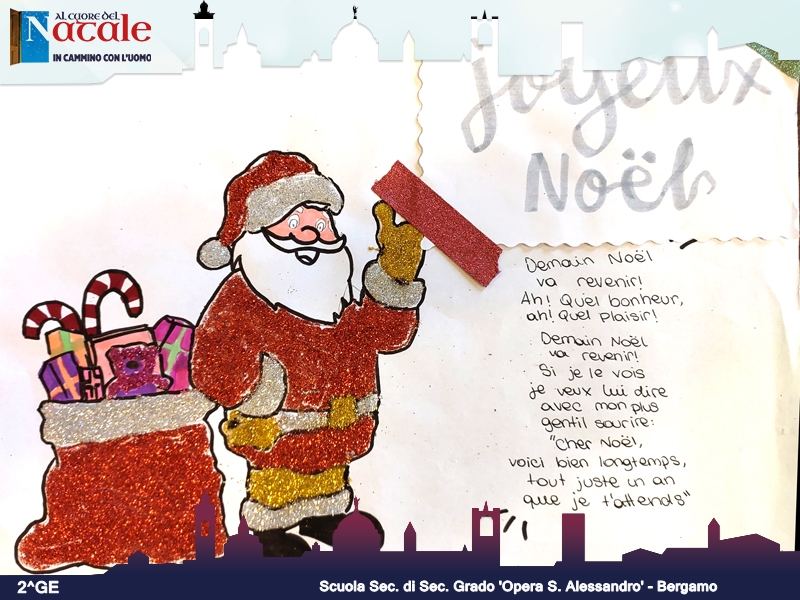 AL CUORE DEL
Natale
IN CAMMINO CON L'UOMO
Joyeux
Noël
Demain Noël
va revenir!
Ah! Quel bonheur,
ah! Quel plaisir!
Demain Noël
va revenir!
Si je le vois
je veux lui dire
avec mon plus
gentil sourire:
"Cher Noël,
voici bien longtemps,
tout juste un an
que je t'attends"
2^GE
Scuola Sec. di Sec. Grado 'Opera S. Alessandro' - Bergamo